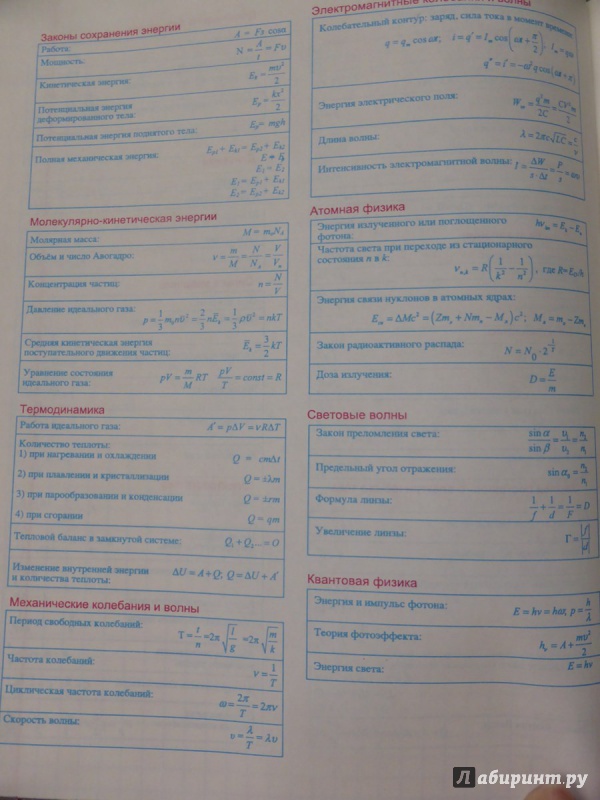 Законы сохранения энергии
Работа: A = Fs cosα
Мощность: N = A/t = Fυ
Кинетическая энергия: Eₚ = mυ²/2
Потенциальная энергия
деформированного тела: Eₚ = kx²/2
Потенциальная энергия поднятого тела: Eₚ = mgh
Полная механическая энергия: Eₚ₁ + Eₖ₁ = Eₚ₂ + Eₖ₂
E₁ = E₂
E₁ = Eₚ₁ + Eₖ₁
E₂ = Eₚ₂ + Eₖ₂
Молекулярно-кинетическая энергии
Молярная масса: M = mₒNₐ
Объём и число Авогадро: ν = m/M = N/Nₐ = V/Vₘ
Концентрация частиц: n = N/V
Давление идеального газа:
p = 1/3 m₀nῡ² = 2/3 nEₖ = 1/3 ρῡ² = nkT
Средняя кинетическая энергия
поступательного движения частиц: Eₖ = 3/2 kT
Уравнение состояния
идеального газа: pV = m/M RT pV/T = const = R
Термодинамика
Работа идеального газа: A' = pΔV = νRΔT
Количество теплоты:
1) при нагревании и охлаждении Q = cmΔt
2) при плавлении и кристаллизации Q = ±λm
3) при парообразовании и конденсации Q = ±rm
4) при сгорании Q = qm
Тепловой баланс в замкнутой системе: Q₁ + Q₂... = 0
Изменение внутренней энергии
и количества теплоты: ΔU = A + Q; Q = ΔU + A'
Механические колебания и волны
Период свободных колебаний: T = t/n = 2π√(l/g) = 2π√(m/k)
Частота колебаний: ν = 1/T
Циклическая частота колебаний: ω = 2π/T = 2πν
Скорость волны: υ = λ/T = λυ
Электромагнитные колебания и волны
Колебательный контур: заряд, сила тока в момент времени
q = qₘ cos ωt; i = q' = Iₘ cos(ωt + π/2)
Энергия электрического поля:
Длина волны:
Интенсивность электромагнитной волны: I = ΔW/(s·Δt)
Атомная физика
Энергия излученного или поглощенного
фотона: hνₖₙ = Eₖ − Eₙ
Частота света при переходе из стационарного
состояния n в k:
νₙ,ₖ = R(1/k² − 1/n²), где R=E₀/h
Энергия связи нуклонов в атомных ядрах:
E꜀ₙ = ΔMc² = (Zmₚ + Nmₙ − Mₐ)c²;
Закон радиоактивного распада:
Доза излучения: D = E/m
Световые волны
Закон преломления света: sin α/sin β = υ₁/υ₂ = n₂/n₁
Предельный угол отражения: sin α₀ = n₂/n₁
Формула линзы: 1/f + 1/d = 1/F = D
Увеличение линзы: Γ = |f/d|
Квантовая физика
Энергия и импульс фотона: E = hν = ħω, p = h/λ
Теория фотоэффекта: hᵥ = A + mυ²/2
Энергия света: E = hν
Лабиринт.ру